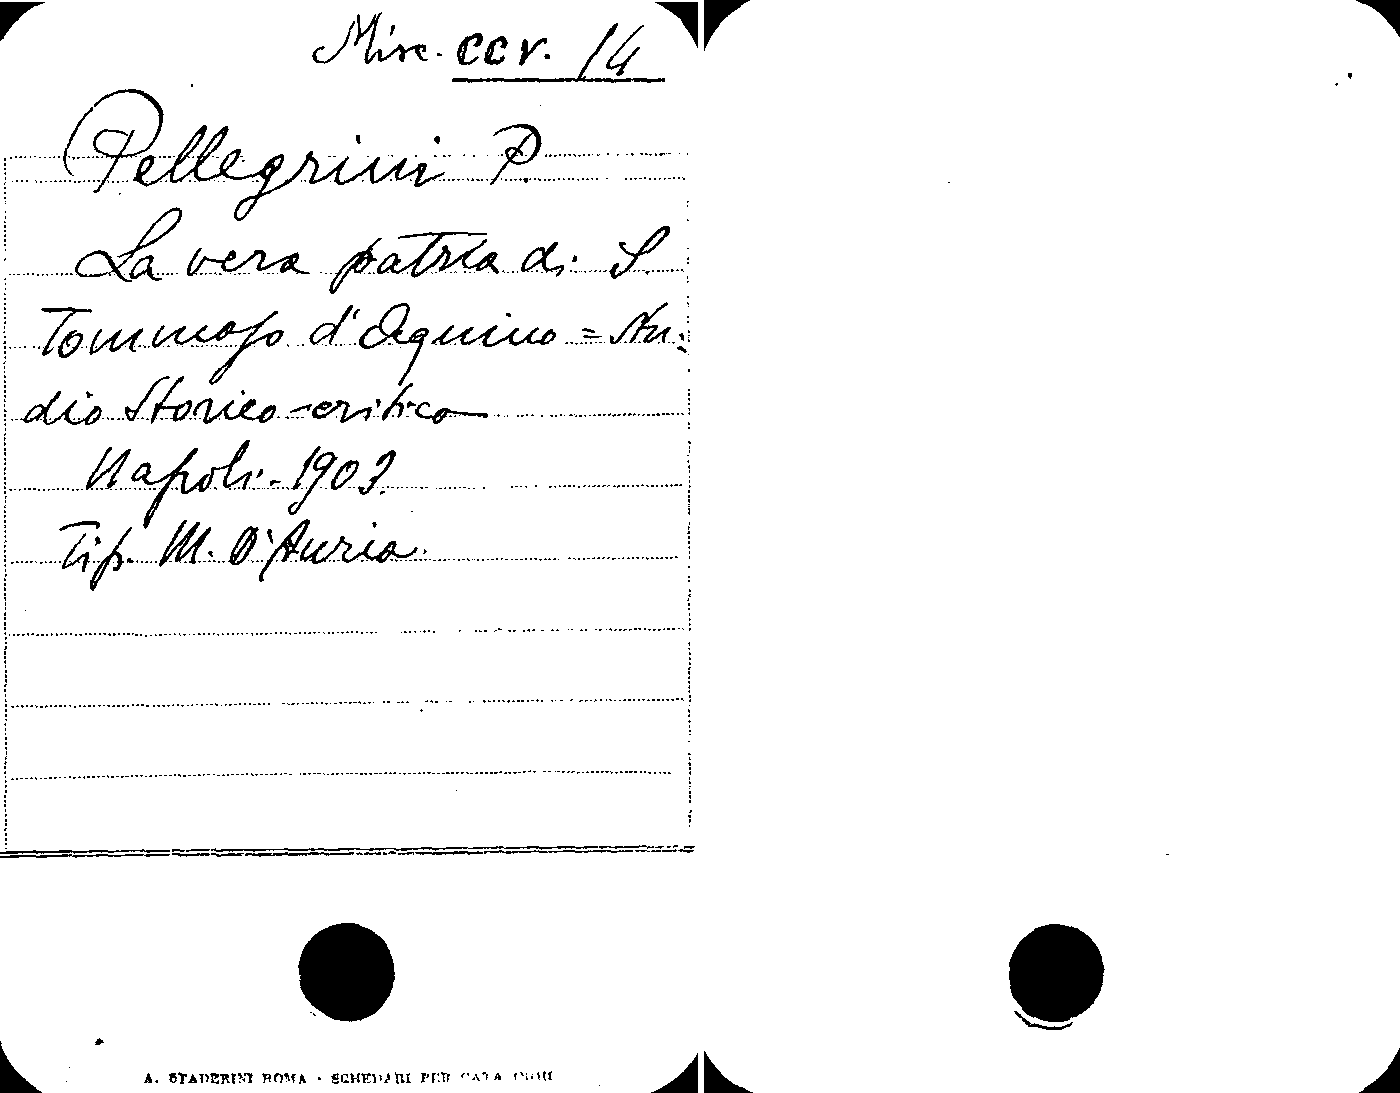 Misc. CCV. 14
Pellegrini P.
La vera patria di S.
Tommaso d'Aquino = Stu-
dio Storico-critico
Napoli - 1903.
Tip. M. D'Auria.
A. STADERINI ROMA - SCHEDARI PER